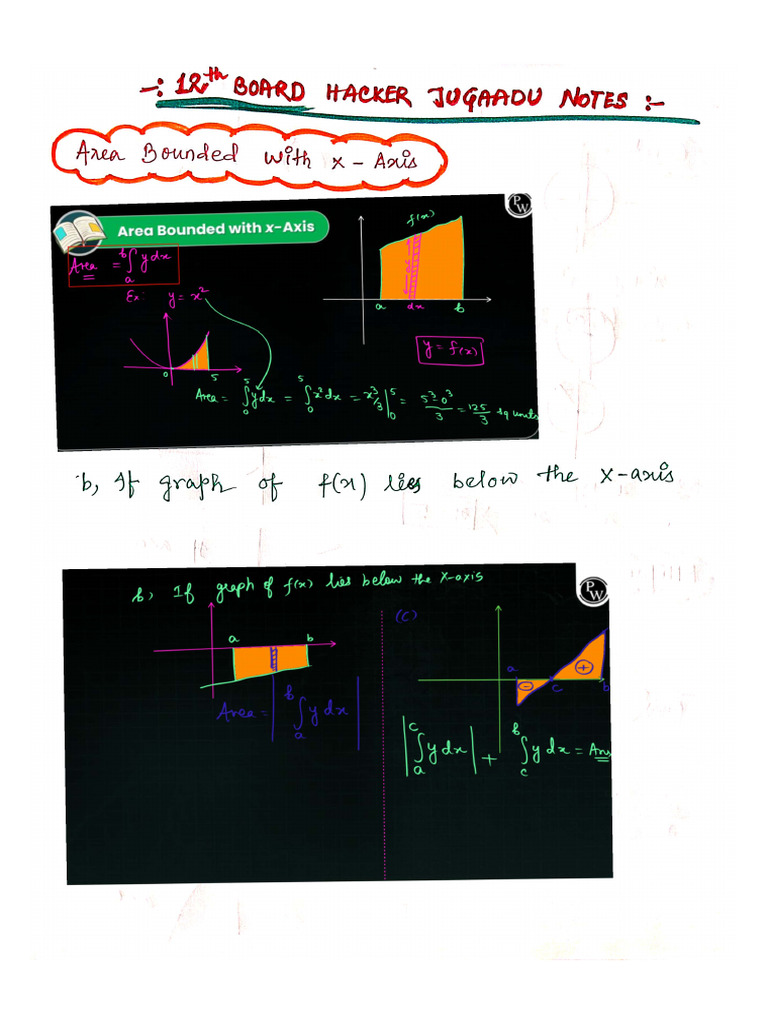 -: 12th BOARD HACKER JUGAADU NOTES :-
Area Bounded with x - Axis
PW
Area Bounded with x-Axis
f(x)
Area = ∫ₐᵇ y dx
Ex: y = x²
y
a dx b
y = f(x)
0 5
Area = ∫₀⁵ y dx = ∫₀⁵ x² dx = x³/3 |₀⁵ = 5³-0³/3 = 125/3 sq units
b, If graph of f(x) lies below the x-axis
b) If graph of f(x) lies below the x-axis
PW
(C)
a b
a c b
- +
Area = |∫ₐᵇ y dx|
|∫ₐᶜ y dx| + ∫꜀ᵇ y dx = Ans